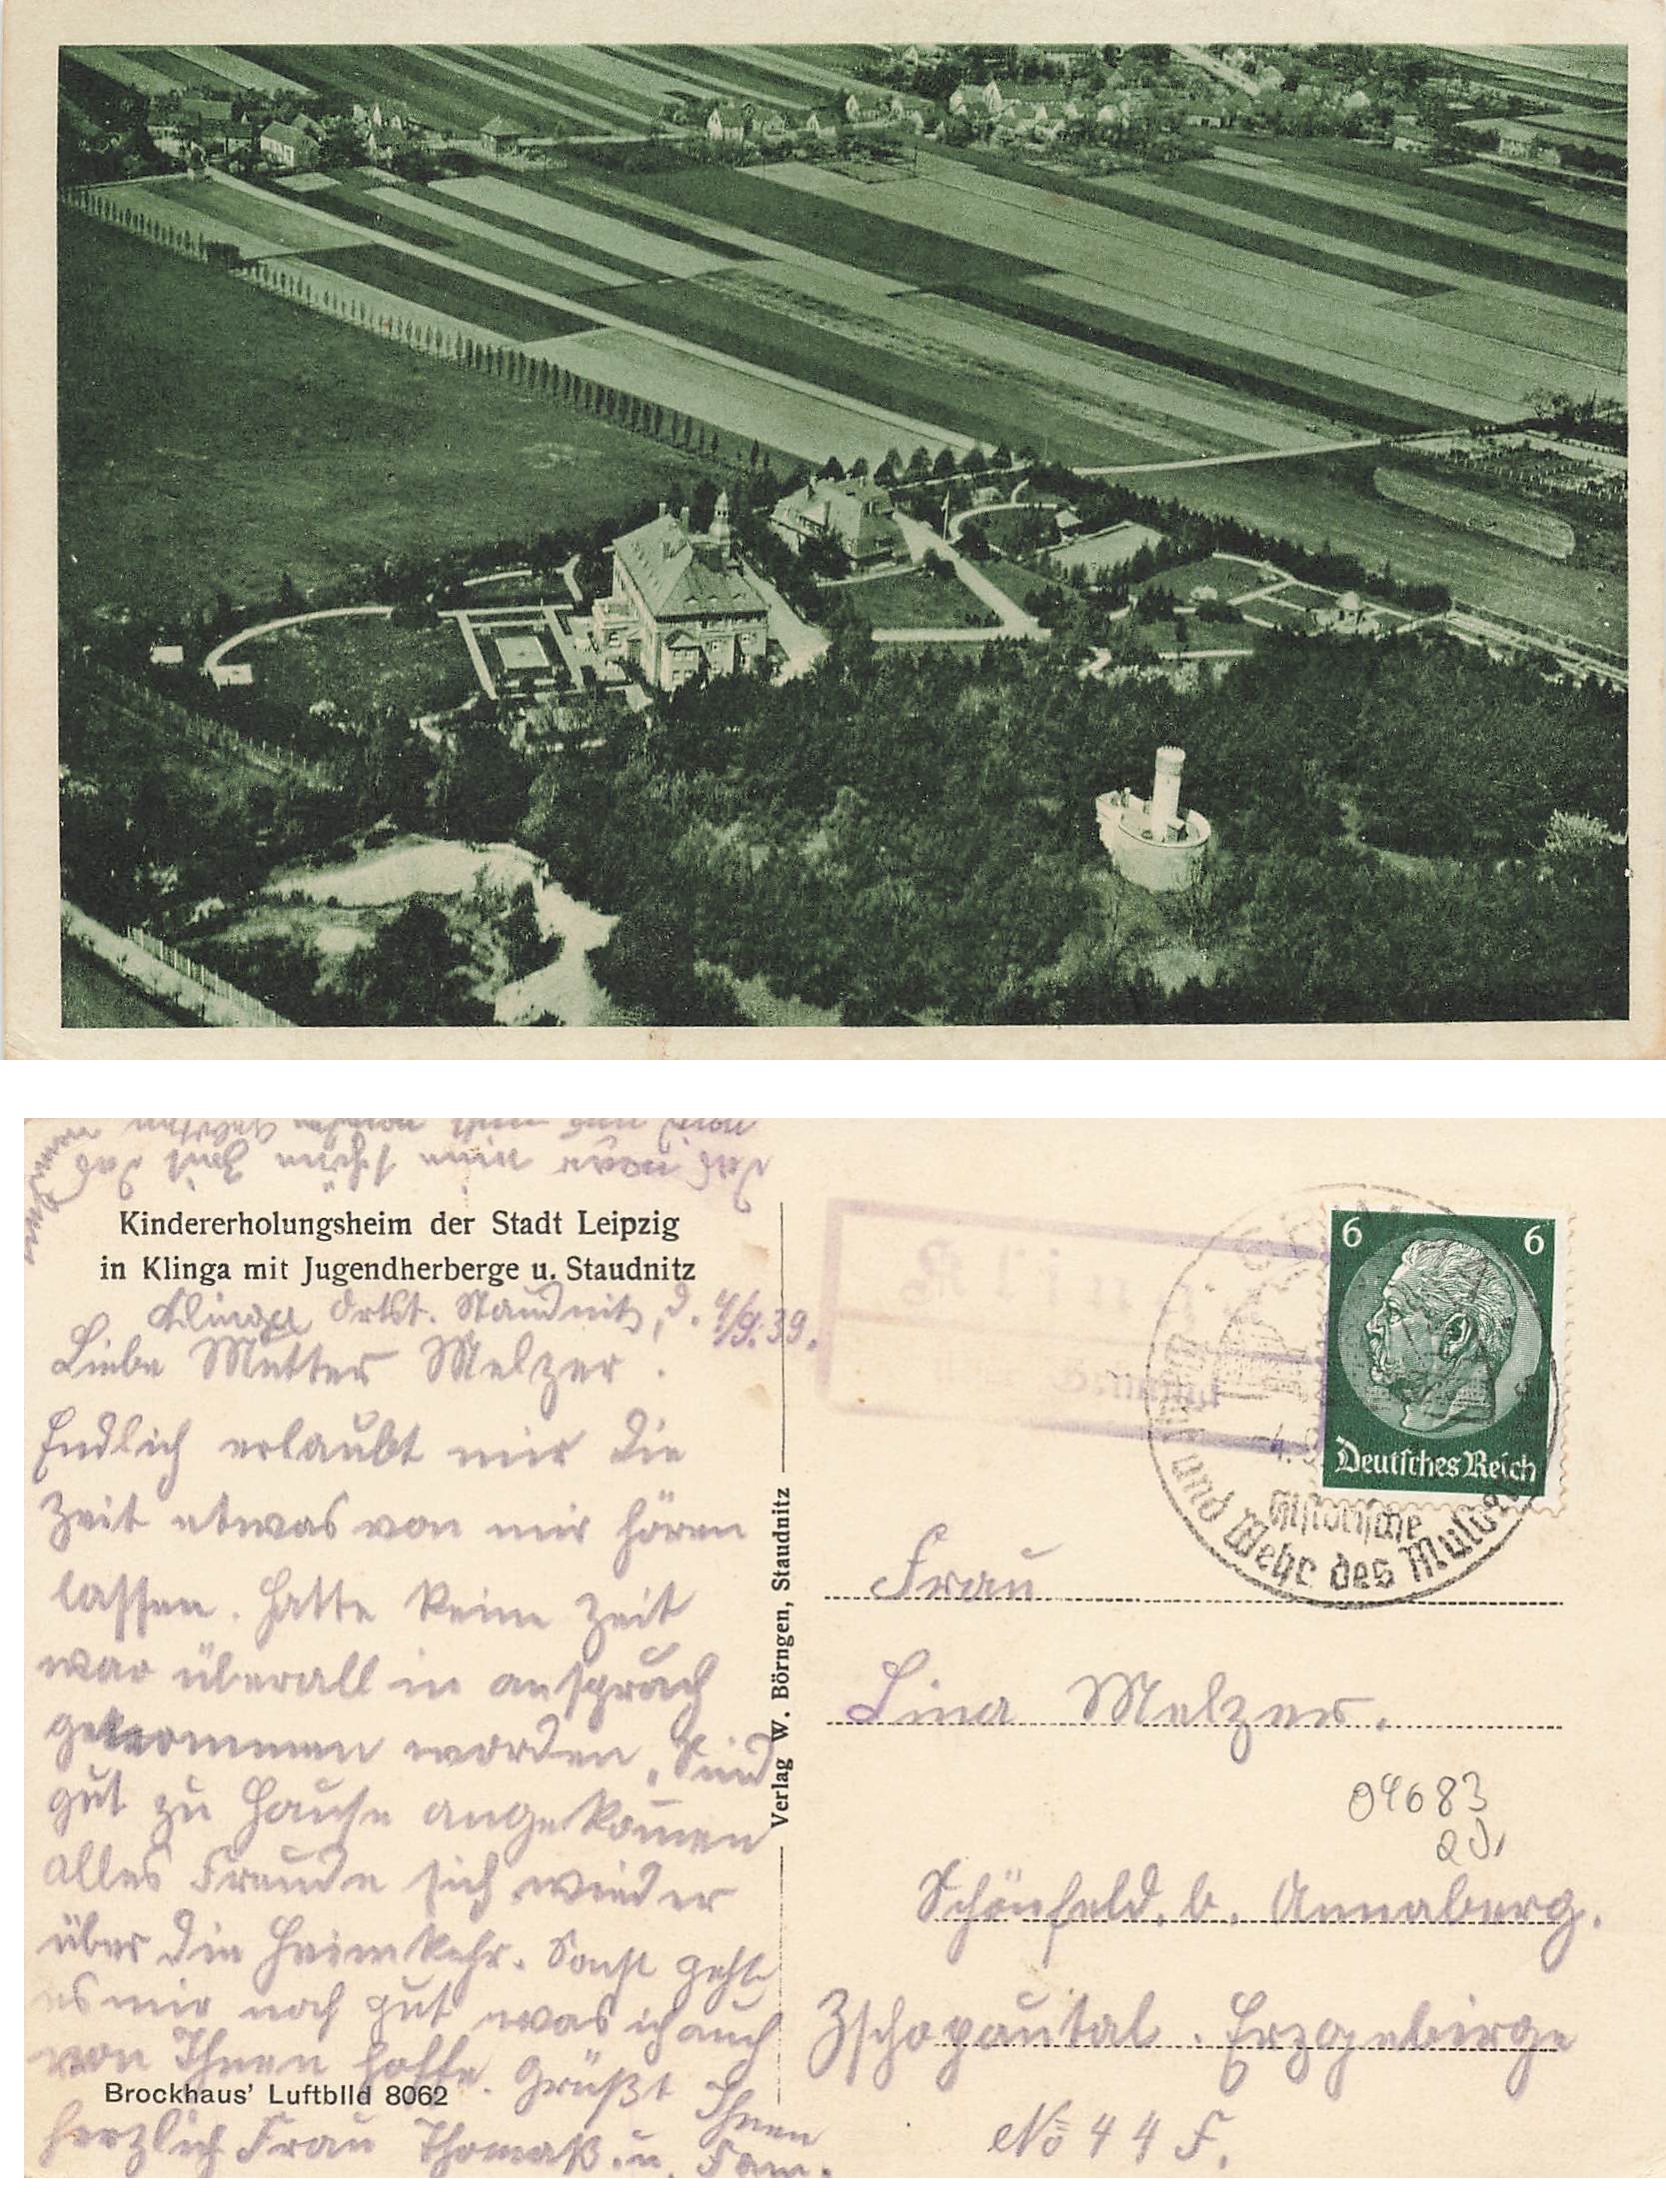 Kindererholungsheim der Stadt Leipzig
in Klinga mit Jugendherberge u. Staudnitz
Klinga Ortst. Staudnitz, d. 4/9.39.
Liebe Mutter Melzer.
Endlich erlaubt mir die
Zeit etwas von mir hören
lassen. Hatte keine Zeit
war überall in anspruch
genommen worden, Sind
gut zu Hause angekommen
alles Freude sich wieder
über die Heimkehr. Sonst geht
es mir noch gut was ich auch
von Ihnen hoffe. Grüßt Ihnen
herzlich Frau Thomaß u. Fam.
Brockhaus' Luftbild 8062
Verlag W. Börngen, Staudnitz
6 6
Deutsches Reich
Historische
und Wehr des
Frau
Lina Melzer.
04683
Schönfeld. b. Annaberg.
Zschopautal. Erzgebirge
No 44 F.